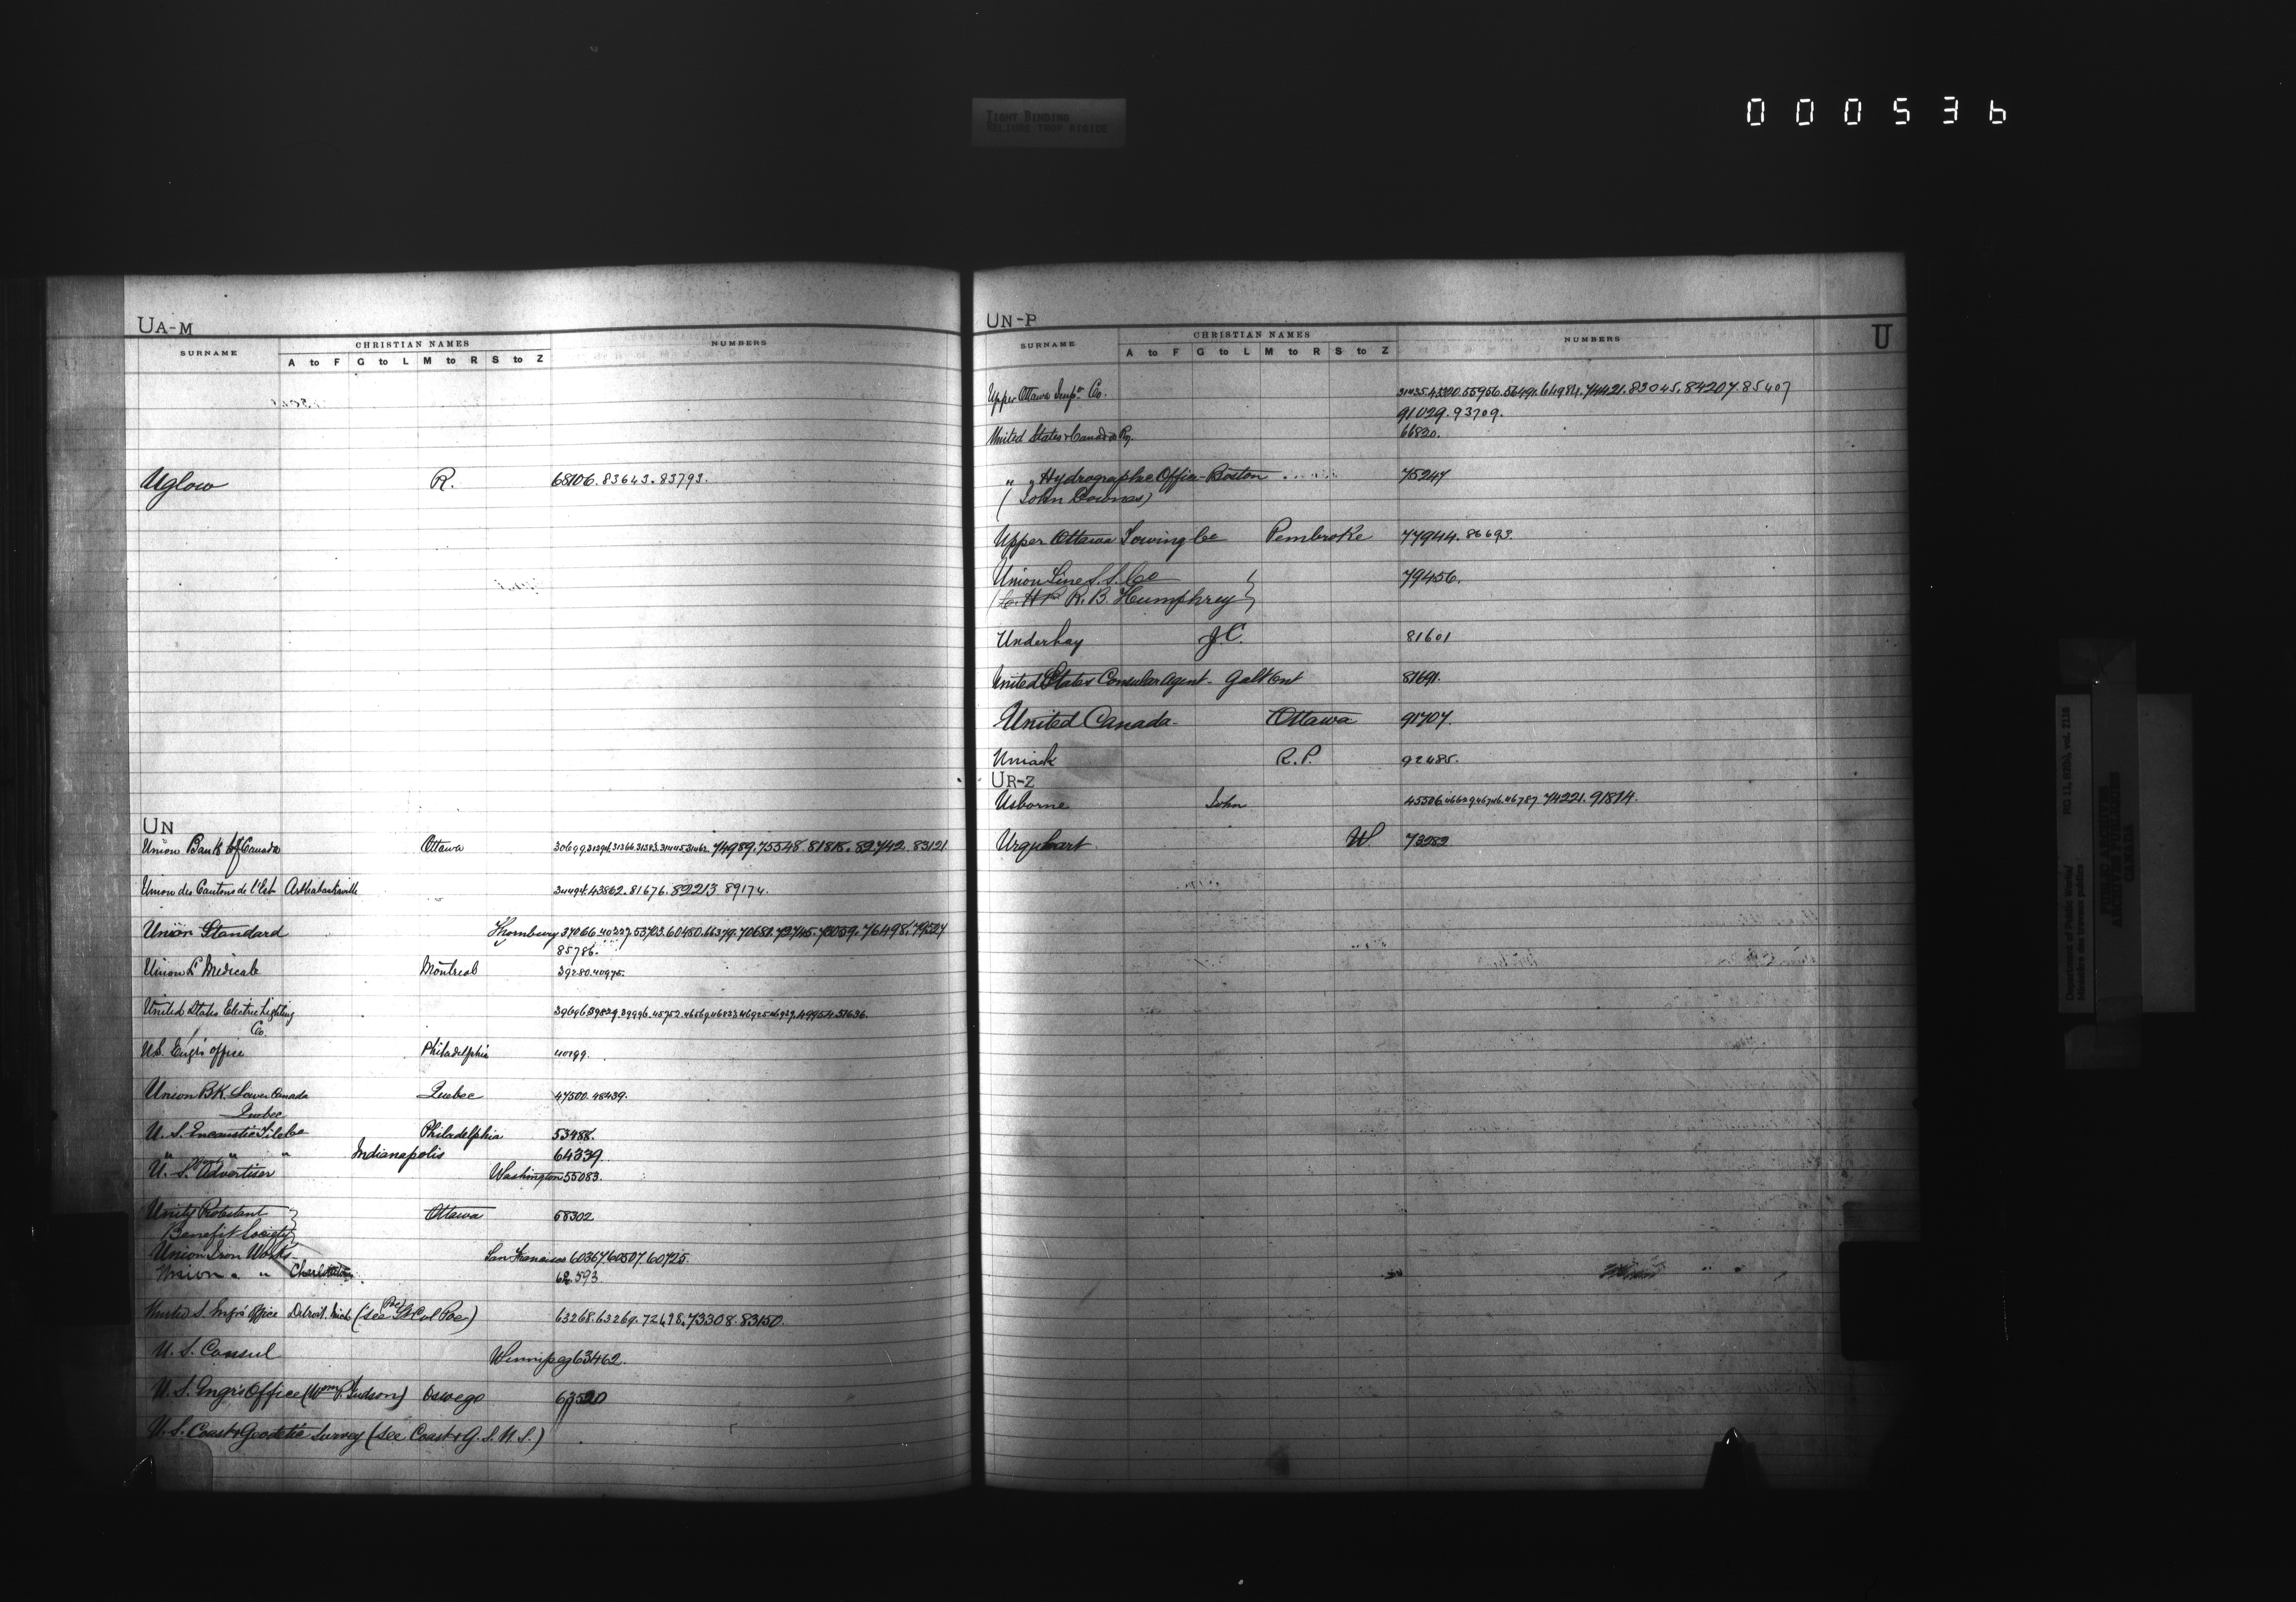 TIGHT BINDING
RELIURE TROP RIGIDE
000536
UA-M
SURNAME CHRISTIAN NAMES NUMBERS
A to F G to L M to R S to Z
Uglow R. 68106. 83643. 83793.
UN
Union Bank of Canada Ottawa 74989. 75548. 81818. 82742. 83121
Union des Cantons de l'Est Arthabaskaville 43862. 81676. 82213. 89174.
Union Standard Thornbury 37066. 53703. 60450. 66379. 70681. 72745. 76498. 79504
85786.
Union L Medicale Montreal 39280. 40975.
United States Electric Lighting
Co.
U.S. Engrs office Philadelphia
Union BK. Lower Canada Quebec 47500. 48439.
Quebec
U. S. Encaustic Tile Co Philadelphia 53488.
" " " Indianapolis 64339.
U. S. Advertiser Washington 55083.
Unity Protestant Ottawa 58302
Benefit Society
Union Iron Works San Francisco 60367 60507. 60725.
Union " " Charlottetown 62593
United S. Engrs Office Detroit. Mich (see Col Poe) 63268. 63269. 72698. 73308. 83150.
U. S. Consul Winnipeg 63462.
U. S. Engrs Office (Wm P. Judson) Oswego
U. S. Coast & Geodetic Survey (see Coast & G. S. U. S.)
UN-P
U
SURNAME CHRISTIAN NAMES NUMBERS
A to F G to L M to R S to Z
Upper Ottawa Impt Co. 74421. 83045. 84207. 85407
91029. 93709.
United States & Canada Ry. 66820.
" " Hydrographic Office - Boston 75247
(John Downes)
Upper Ottawa Towing Co Pembroke 77944. 86693.
Union Line S. S. Co 79456.
R. B. Humphrey
Underhay J. C. 81601
United States Consular Agent - Galt Ont 81691.
United Canada - Ottawa 91707.
Uniack R. P. 92485.
UR-Z
Usborne John 45506. 46787 74221. 91814.
Urquhart W 73282
Department of Public Works/
Ministère des travaux publics
RG 11, B2(b), vol. 2126
PUBLIC ARCHIVES
ARCHIVES PUBLIQUES
CANADA